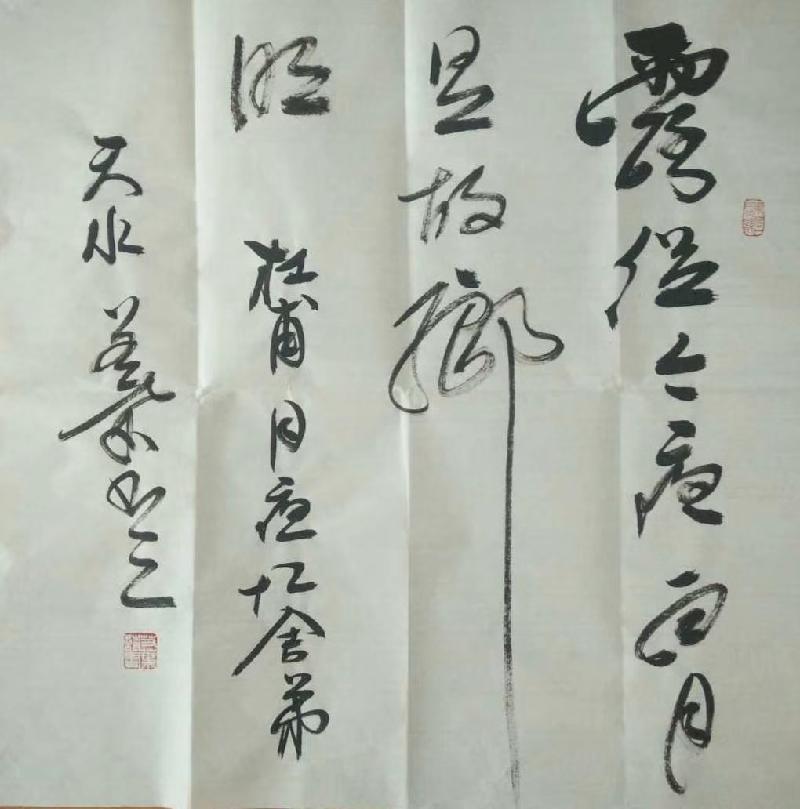 露從今夜白月
是故鄉
明 杜甫月夜忆舍弟
天水